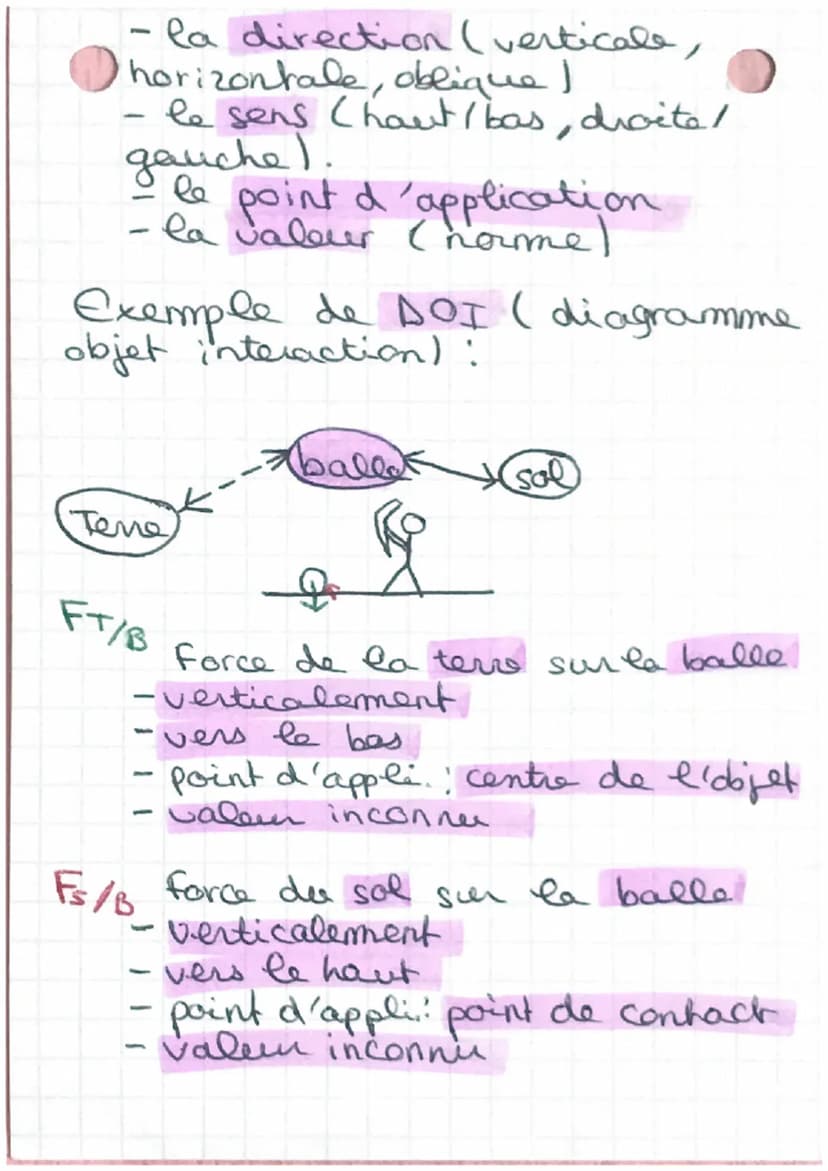 - la direction (verticale,
horizontale, oblique)
- le sens (haut/bas, droite/
gauche).
- le point d'application
- la valeur (norme)
Exemple de DOI (diagramme
objet interaction) :
balle
sol
Terre
FT/B
Force de la terre sur la balle
- verticalement
- vers le bas
- point d'appli. : centre de l'objet
- valeur inconnu
Fs/B
Force du sol sur la balle
- verticalement
- vers le haut
- point d'appli. : point de contact
- valeur inconnu